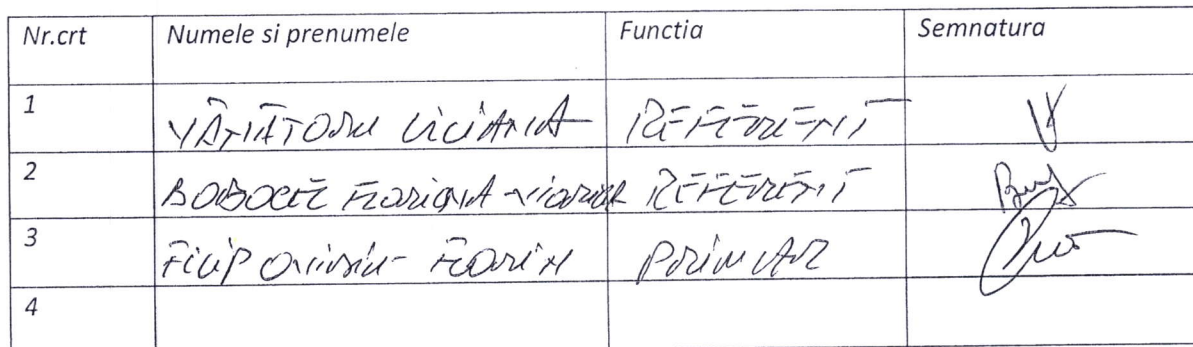 Nr.crt Numele si prenumele Functia Semnatura
1 VÂNĂTORU LILIANA REFERENT
2 BOBOCEL FLORICA-VIORICA REFERENT
3 FILIP OVIDIU-FLORIN PRIMAR
4